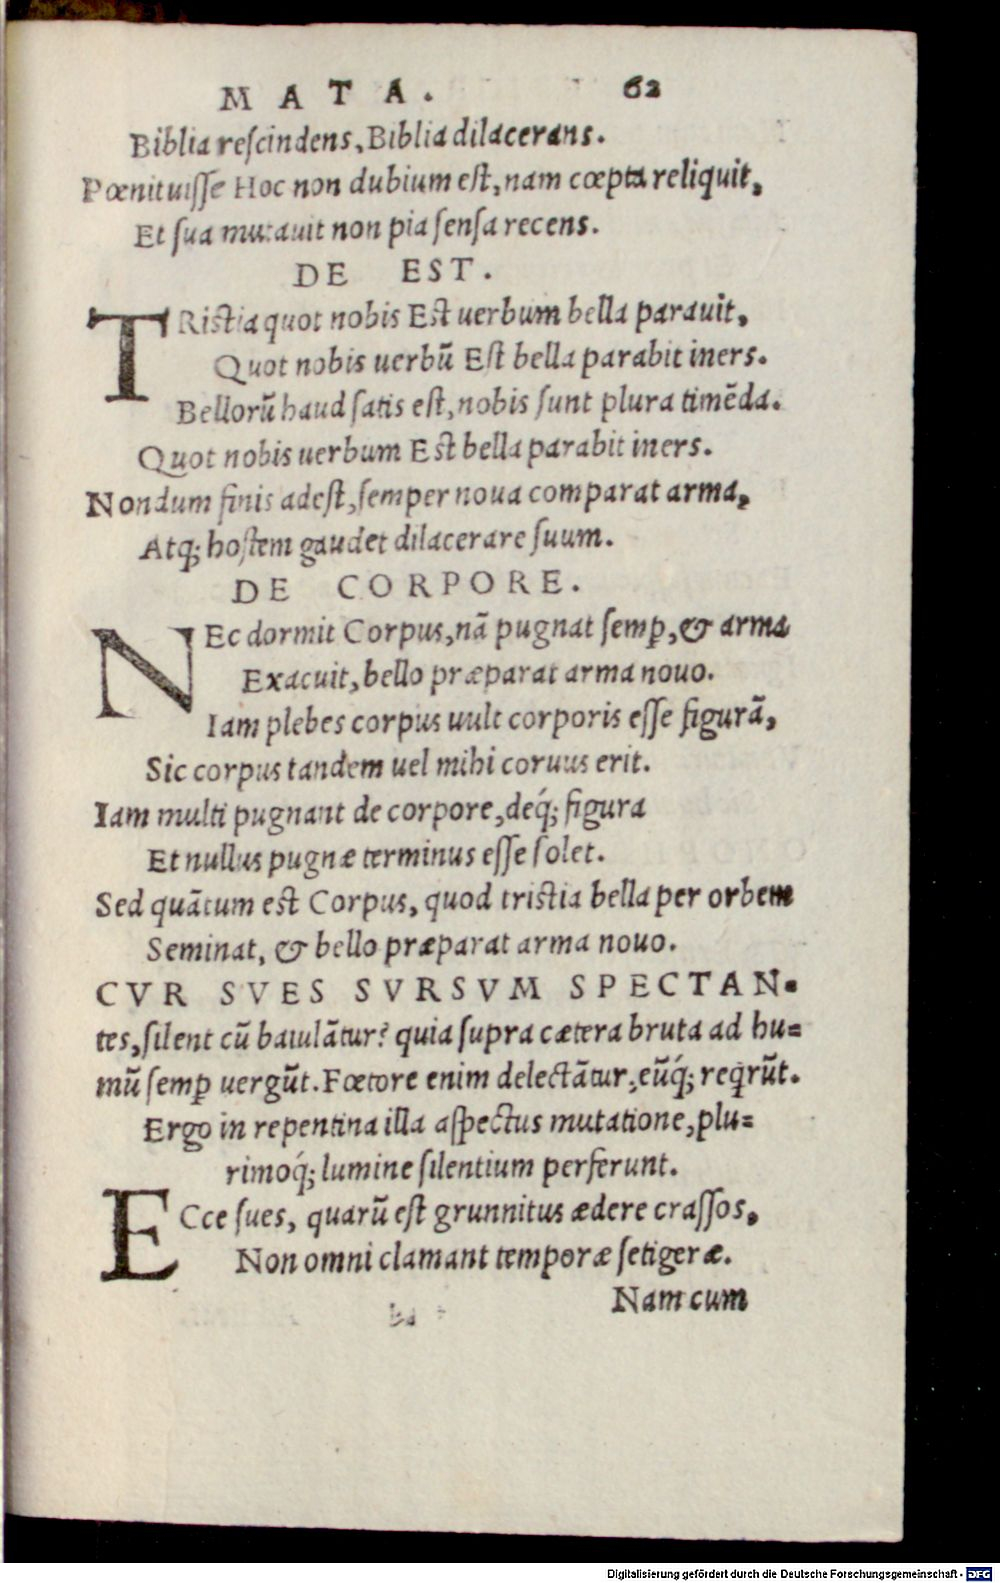 MATA. 62
Biblia reſcindens, Biblia dilacerans.
Pœnituiſſe Hoc non dubium eſt, nam cœpta reliquit,
Et ſua mutauit non pia ſenſa recens.
DE EST.
TRiſtia quot nobis Eſt uerbum bella parauit,
Quot nobis uerbũ Eſt bella parabit iners.
Bellorũ haud ſatis eſt, nobis ſunt plura timẽda.
Quot nobis uerbum Eſt bella parabit iners.
Nondum finis adeſt, ſemper noua comparat arma,
Atq; hoſtem gaudet dilacerare ſuum.
DE CORPORE.
NEc dormit Corpus, nã pugnat ſemꝑ, & arma
Exacuit, bello præparat arma nouo.
Iam plebes corpus uult corporis eſſe figurã,
Sic corpus tandem uel mihi coruus erit.
Iam multi pugnant de corpore, deq́; figura
Et nullus pugnæ terminus eſſe ſolet.
Sed quãtum eſt Corpus, quod triſtia bella per orbem
Seminat, & bello præparat arma nouo.
CVR SVES SVRSVM SPECTAN-
tes, ſilent cũ baiulãtur? quia ſupra cætera bruta ad hu=
mũ ſemꝑ uergũt. Fœtore enim delectãtur, eũq́; reqrũt.
Ergo in repentina illa aſpectus mutatione, plu=
rimoq́; lumine ſilentium perferunt.
ECce ſues, quarũ eſt grunnitus ædere craſſos,
Non omni clamant temporæ ſetigeræ.
Nam cum
Digitalisierung gefördert durch die Deutsche Forschungsgemeinschaft - DFG